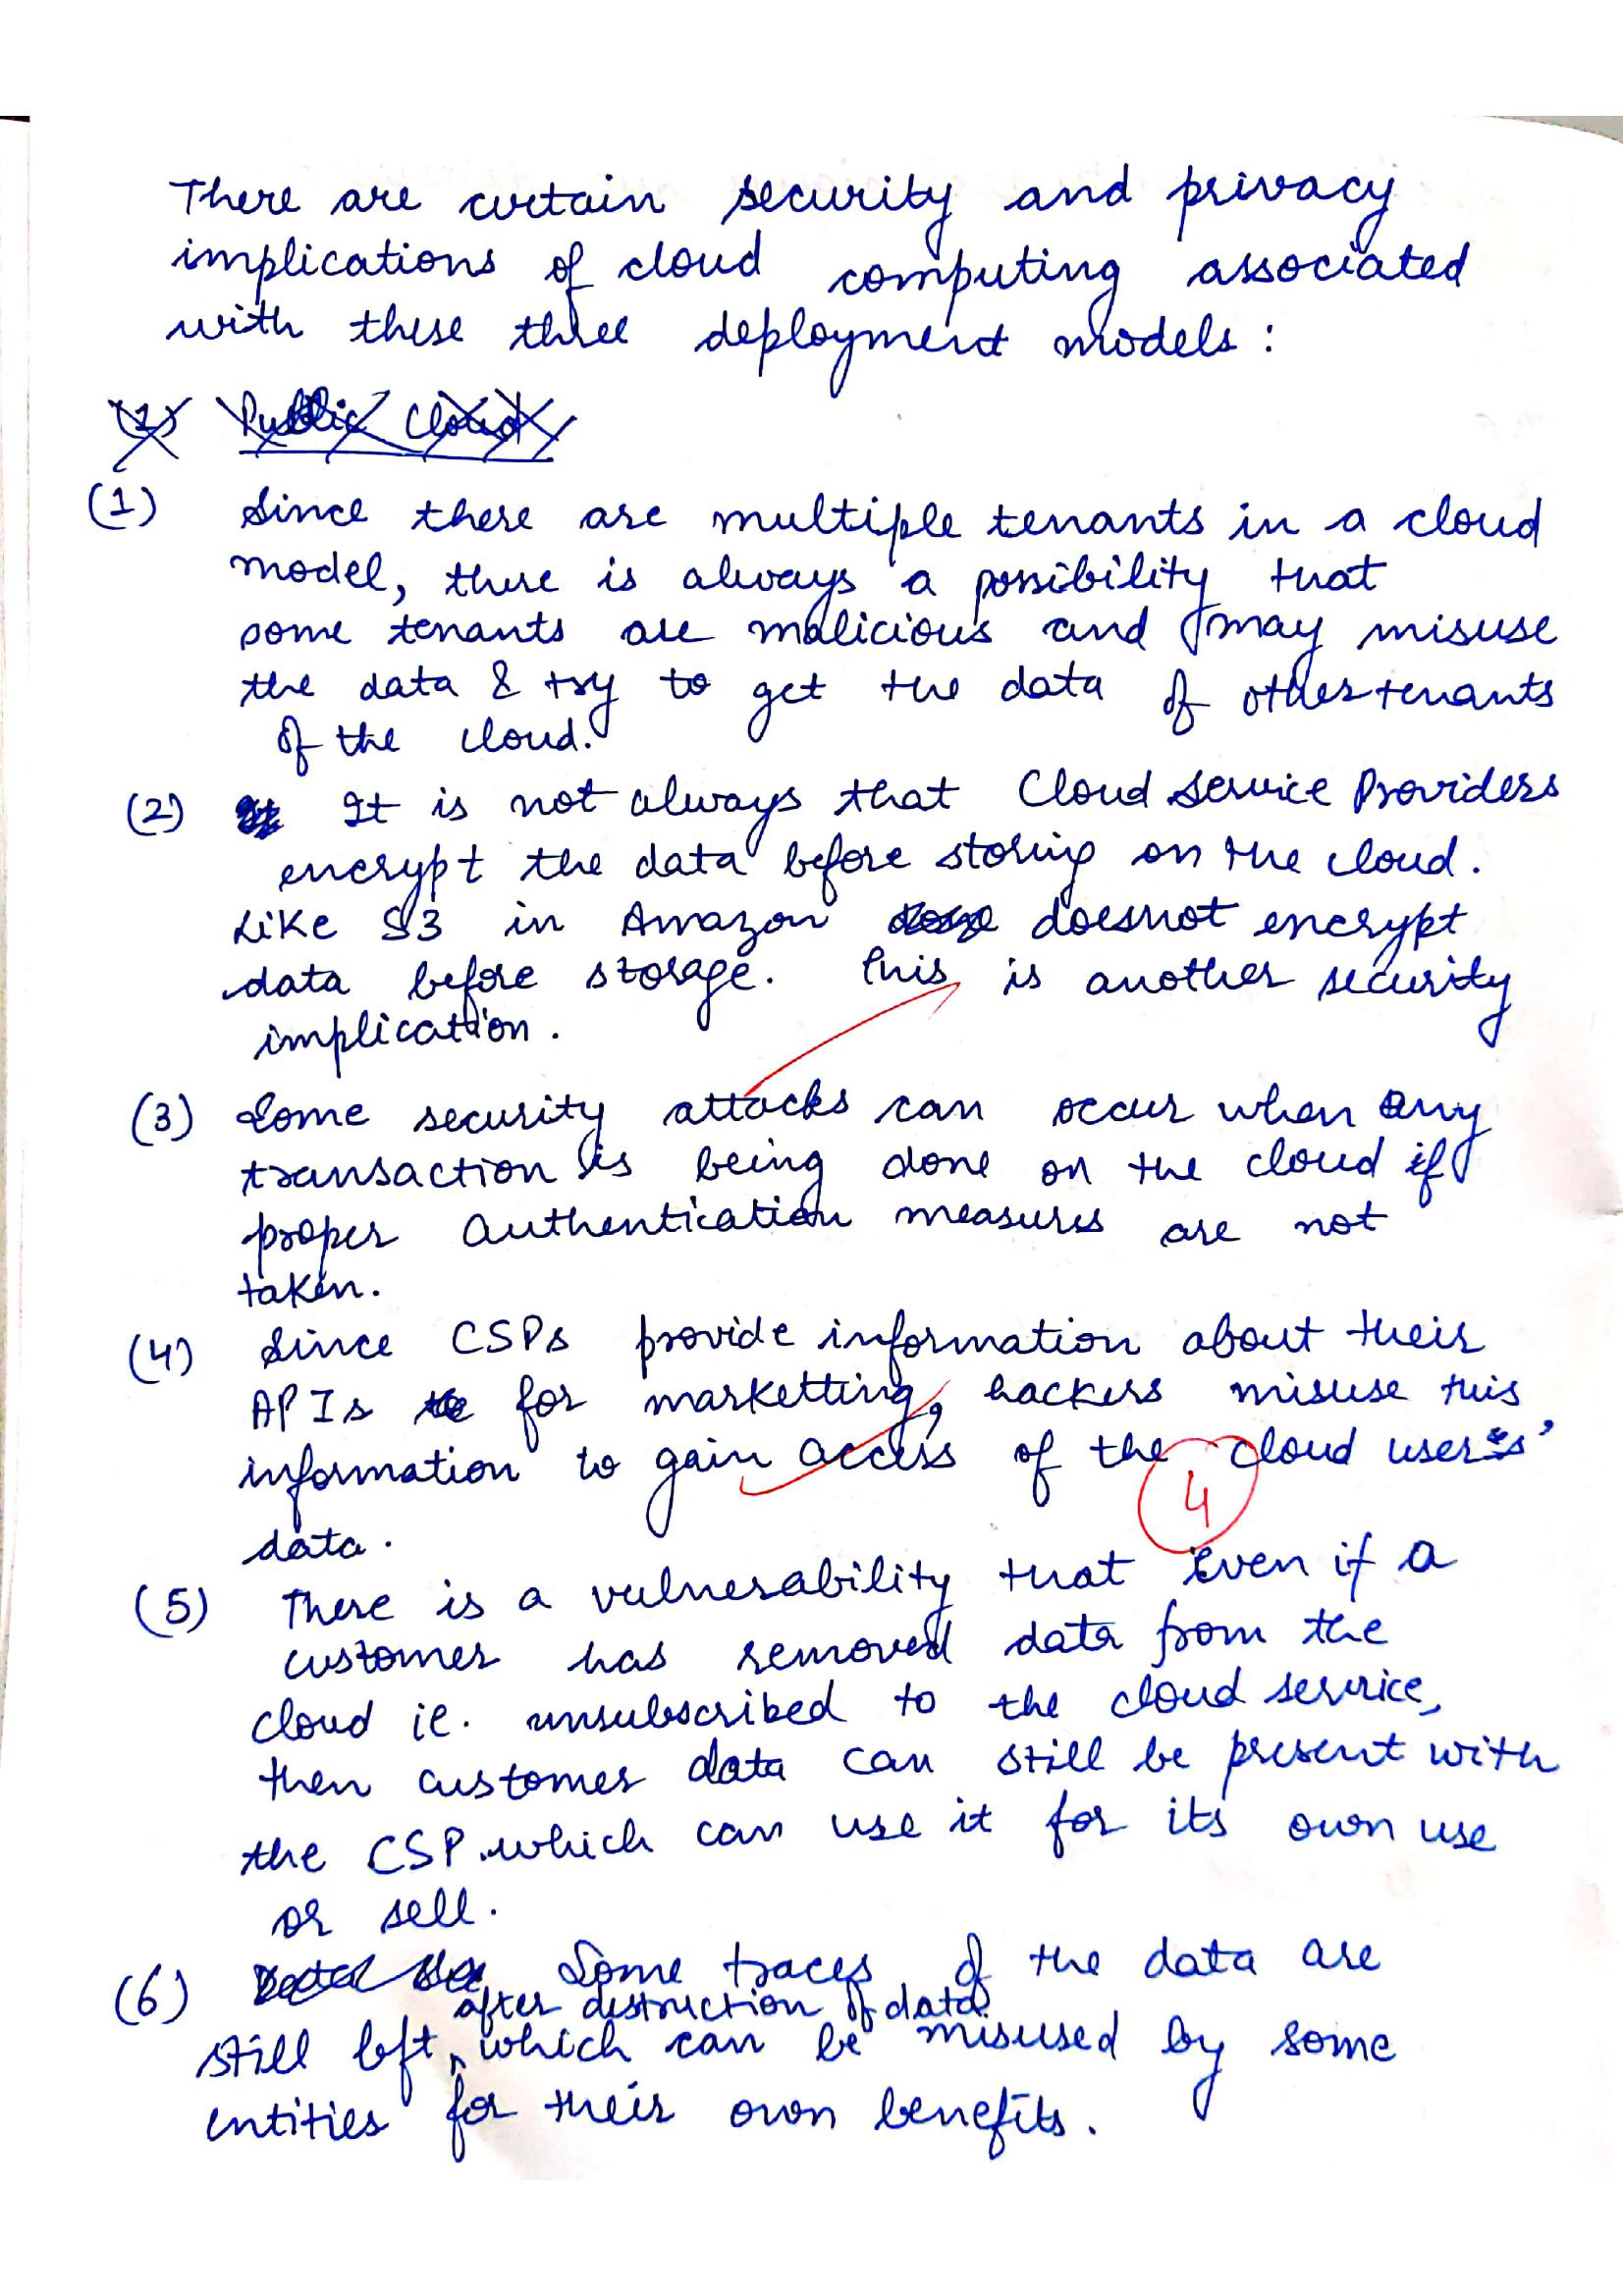 There are certain security and privacy
implications of cloud computing associated
with these three deployment models :
(1) Public Cloud
(1) Since there are multiple tenants in a cloud
model, there is always a possibility that
some tenants are malicious and may misuse
the data & try to get the data of other tenants
of the cloud.
(2) It is not always that Cloud Service Providers
encrypt the data before storing on the cloud.
Like S3 in Amazon doesnot encrypt
data before storage. This is another security
implication.
(3) Some security attacks can occur when any
transaction is being done on the cloud if
proper authentication measures are not
taken.
(4) Since CSPs provide information about their
APIs for marketting, hackers misuse this
information to gain access of the cloud users'
4
data.
(5) There is a vulnerability that even if a
customer has removed data from the
cloud ie. unsubscribed to the cloud service,
then customer data can still be present with
the CSP which can use it for its own use
or sell.
(6) Some traces of the data are
after destruction of data
still left, which can be misused by some
entities for their own benefits.